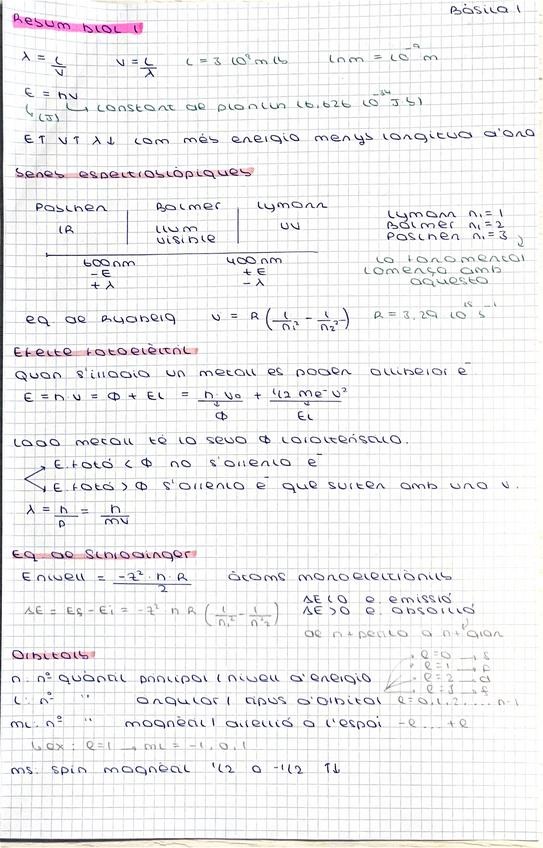 Bàsica 1
Resum bloc 1
λ = c/ν   ν = c/λ   c = 3·10⁸ m/s   1nm = 10⁻⁹ m
E = hν
(J) constant de planck (6,626 10⁻³⁴ J·s)
E↑ ν↑ λ↓ com més energia menys longitua d'ona
Series espectroscòpiques
Paschen | Balmer | Lymann
IR | llum visible | UV
600nm   400nm
-E   +E
+λ   -λ
Lymann n₁=1
Balmer n₁=2
Paschen n₁=3
la fonamental
comença amb
aquesta
eq. de Rydberg   ν = R (1/n₁² - 1/n₂²)   R = 3,29 10¹⁵ s⁻¹
Efecte fotoelèctric
Quan s'irradia un metall es poden alliberar e⁻
E = h·ν = Φ + Ec = h·ν₀ + 1/2 me⁻ v²
Φ   Ec
Cada metall té la seva Φ característica.
E.fotó < Φ no s'arrenca e⁻
E.fotó > Φ s'arrenca e⁻ que surten amb una v.
λ = h/p = h/mv
Eq de Schrodinger
Enivell = -Z²·h·R/2   àtoms monoelectrònics
ΔE = Ef - Ei = -Z² h R (1/n₁² - 1/n₂²)
ΔE<0 e. emissió
ΔE>0 e. absorció
de n+petita a n+gran
Orbitals
n: nº quàntic principal / nivell d'energia
l: nº " angular / tipus d'orbital   l=0,1,2,... n-1
l=0 → s
l=1 → p
l=2 → d
l=3 → f
ml: nº " magnètic / direcció a l'espai   -l ... +l
ex: l=1 → ml = -1, 0, 1
ms: spin magnètic 1/2 o -1/2 ↑↓